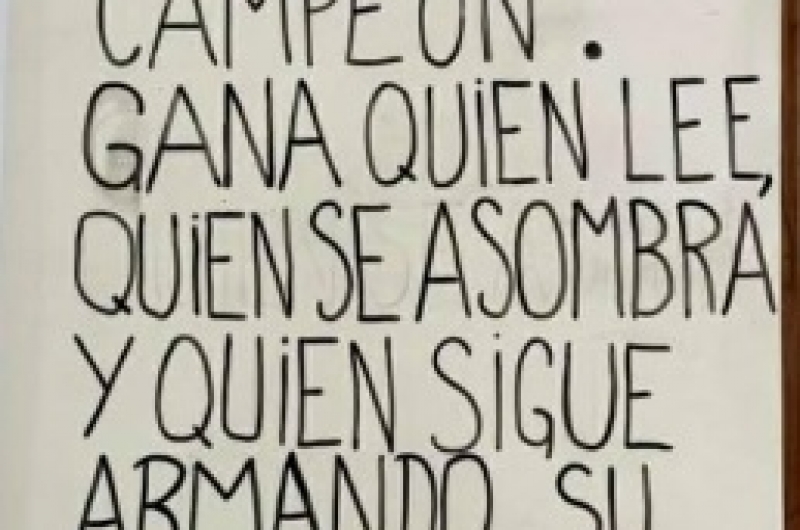 CAMPEÓN.
GANA QUIEN LEE,
QUIEN SE ASOMBRA
Y QUIEN SIGUE
ARMANDO SU